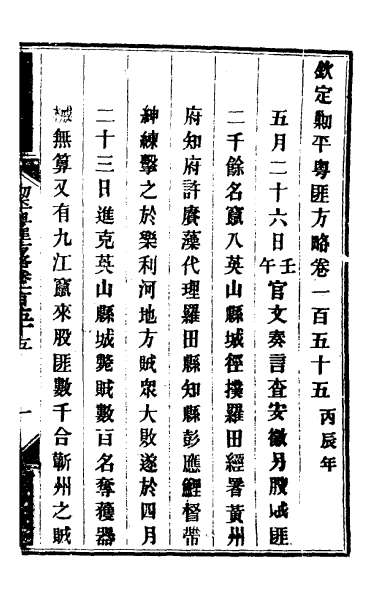 欽定剿平粵匪方略卷一百五十五 丙辰年
五月二十六日壬午官文奏言查安徽另股賊匪
二千餘名竄入英山縣城徑撲羅田經署黃州
府知府許賡藻代理羅田縣知縣彭應鯉督帶
紳練擊之於樂利河地方賊眾大敗遂於四月
二十三日進克英山縣城斃賊數百名奪獲器
械無算又有九江竄來股匪數千合蘄州之賊